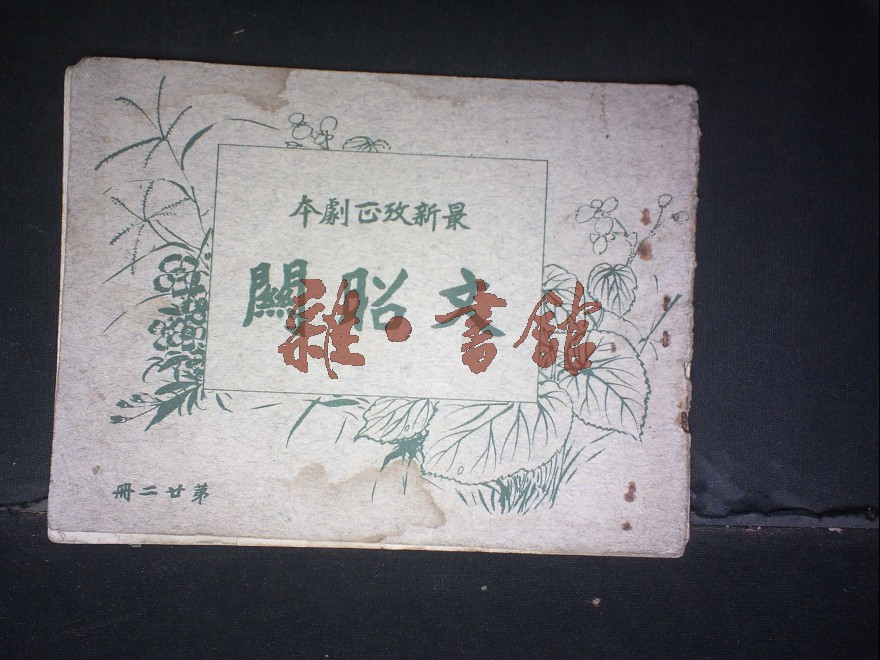 最新攷正劇本
文昭關
雜·書館
第廿二冊